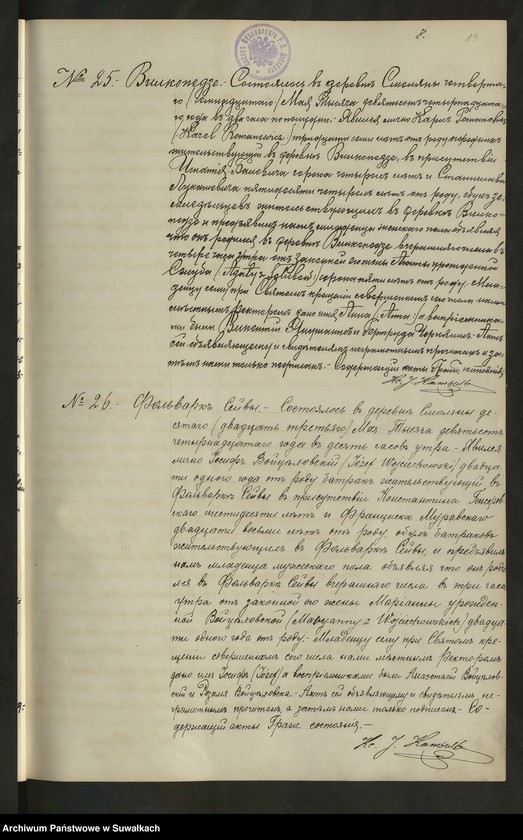 8. 13
№ 25. Вилкопедзе. Состоялось въ деревнѣ Смоляны четверта-
го /семнадцатаго/ Мая тысяча девятьсотъ четырнадцата-
го года въ два часа пополудни. Явился лично Карлъ
/Karol / тридцати семи лѣтъ отъ роду
жительствующій въ деревнѣ Вилкопедзе, въ присутствіи
Игнатія сорока четырехъ лѣтъ и Станислава
пятидесяти четырехъ лѣтъ отъ роду, обухъ зе-
мледѣльцевъ жительствующихъ въ деревнѣ Вилко-
педзе и предъявилъ намъ младенца женскаго пола объявляя
что онъ родился въ деревнѣ Вилкопедзе вчерашняго числа въ
четыре часа утра отъ законной его жены Агаты урожденной
/Agaty z / сорока пяти лѣтъ отъ роду. Мла-
денцу сему при Святомъ крещеніи совершенномъ сего числа нами
мѣстнымъ Ректоромъ дано имя Анна /Anna/ а воспріемника-
ми были Викентій и Гертруда Актъ
сей объявляющему и свидѣтелямъ неграмотнымъ прочитанъ и за-
тѣмъ нами только подписанъ. Содержащій акты Гражд. состоянія
Кс. J.
№ 26. Фольваркъ Сейвы. Состоялось въ деревнѣ Смоляны де-
сятаго /двадцать третьяго/ Мая тысяча девятьсотъ
четырнадцатаго года въ десять часовъ утра. Явился
лично Іосифъ Войцѣховскій /Józef Wojciechowski/ двадца-
ти одного года отъ роду батракъ жительствующій въ
Фольваркѣ Сейвы въ присутствіи Константина
скаго шестидесяти лѣтъ и Франциска Муравскаго
двадцати восьми лѣтъ отъ роду, обухъ батраковъ
жительствующихъ въ Фольваркѣ Сейвы, и предъявилъ
намъ младенца мужескаго пола объявляя что онъ роди-
лся въ Фольваркѣ Сейвы вчерашняго числа въ три часа
утра отъ законной его жены Маріанны урожден-
ной Войцѣховской /Maryanny z Wojciechowskich/ двадца-
ти одного года отъ роду. Младенцу сему при Святомъ кре-
щеніи совершенномъ сего числа нами мѣстнымъ Ректоромъ
дано имя Іосифъ /Józef/ а воспріемниками были Анастасій Войцѣхов-
скій и Розалія Войцѣховска. Актъ сей объявляющему и свидѣтелямъ не-
грамотнымъ прочитанъ, а затѣмъ нами только подписанъ. Со-
держащій акты Гражд. состоянія.
Кс. J.
Archiwum Państwowe w Suwałkach